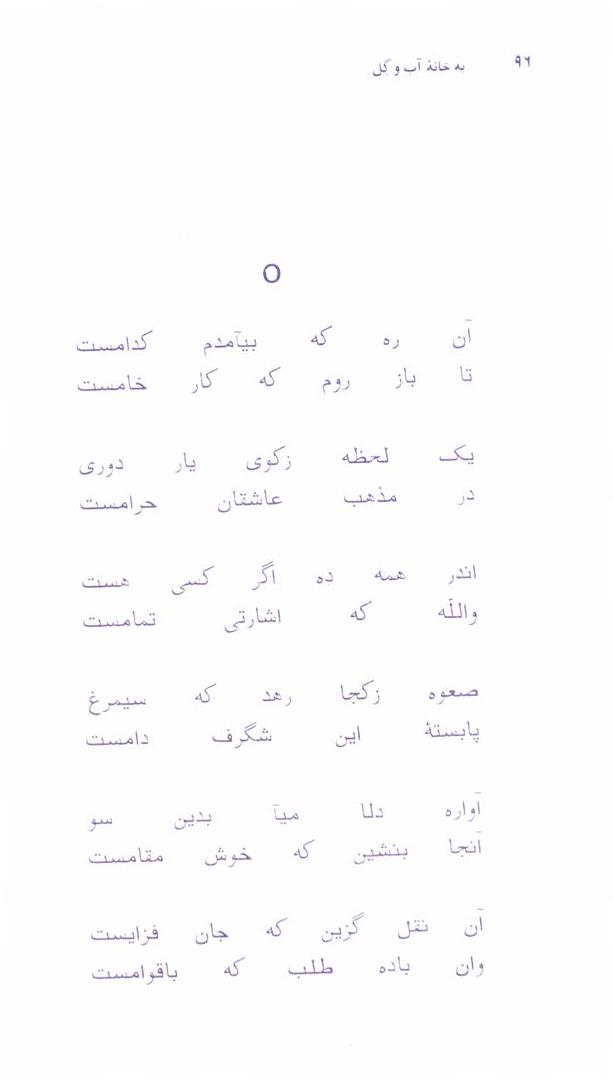 ۹۶ به خانهٔ آب و گِل
O
آن ره که بیآمدم کدامست
تا باز روم که کار خامست
یک لحظه زکوی یار دوری
در مذهب عاشقان حرامست
اندر همه ده اگر کسی هست
واللّه که اشارتی تمامست
صعوه زکجا رهد که سیمرغ
پابستهٔ این شگرف دامست
آواره دلا میآ بدین سو
آنجا بنشین که خوش مقامست
آن نقل گزین که جان فزایست
وان باده طلب که باقوامست